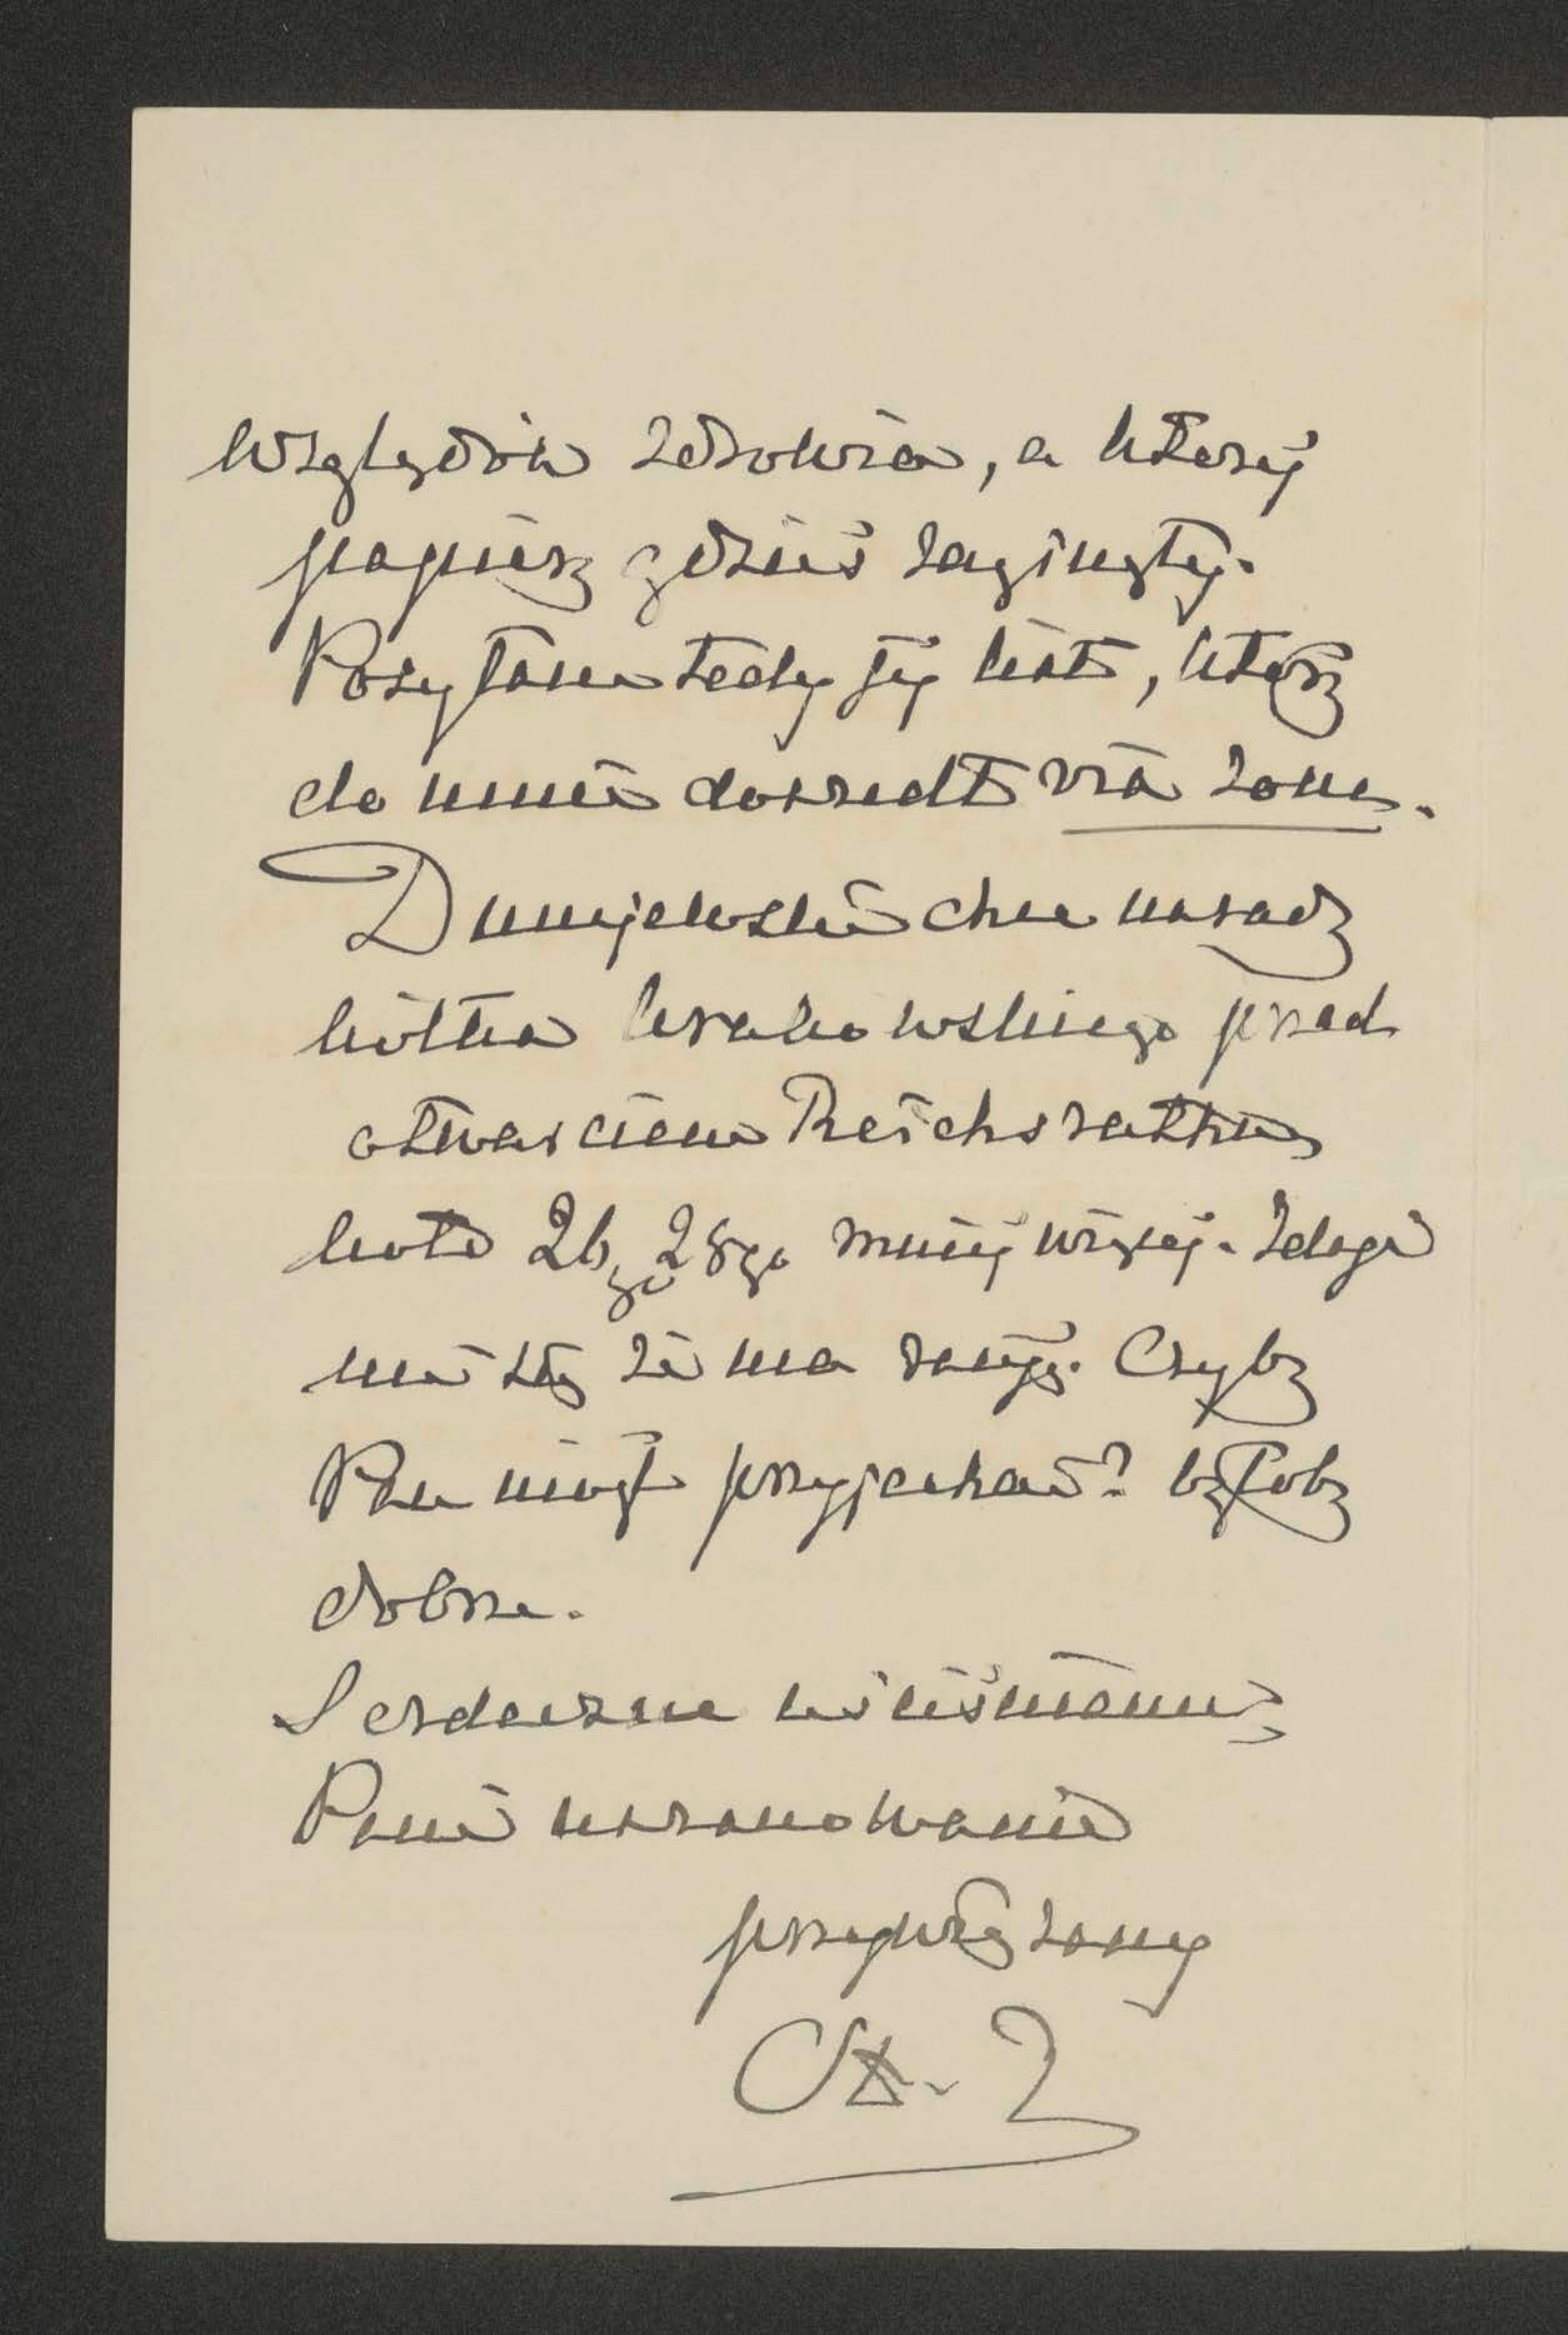 względów zdrowia, a której
papiery gdzieś zaginęły.
Posyłam tedy jej list, który
do mnie doszedł via żona.
Dunajewski chce narady
kółka krakowskiego przed
otwarciem Reichsrathu
koło 26go 28go mniej więcej. Zdaje
mi się że ma rację. Czyby
Pan mógł przyjechać? byłoby
dobrze.
Serdecznie Go ściskam
Pani uszanowanie
przywiązany
St.